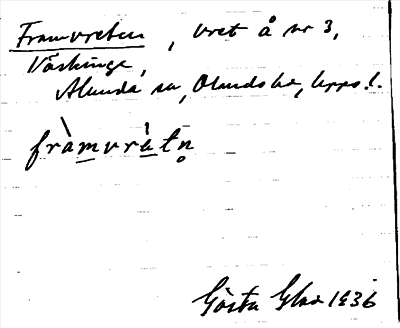 Framvreten, vret å nr 3,
Väskinge,
Alunda sn, Olands hd, Upps. l.
fràmvrètn̥
Gösta Glad 1936